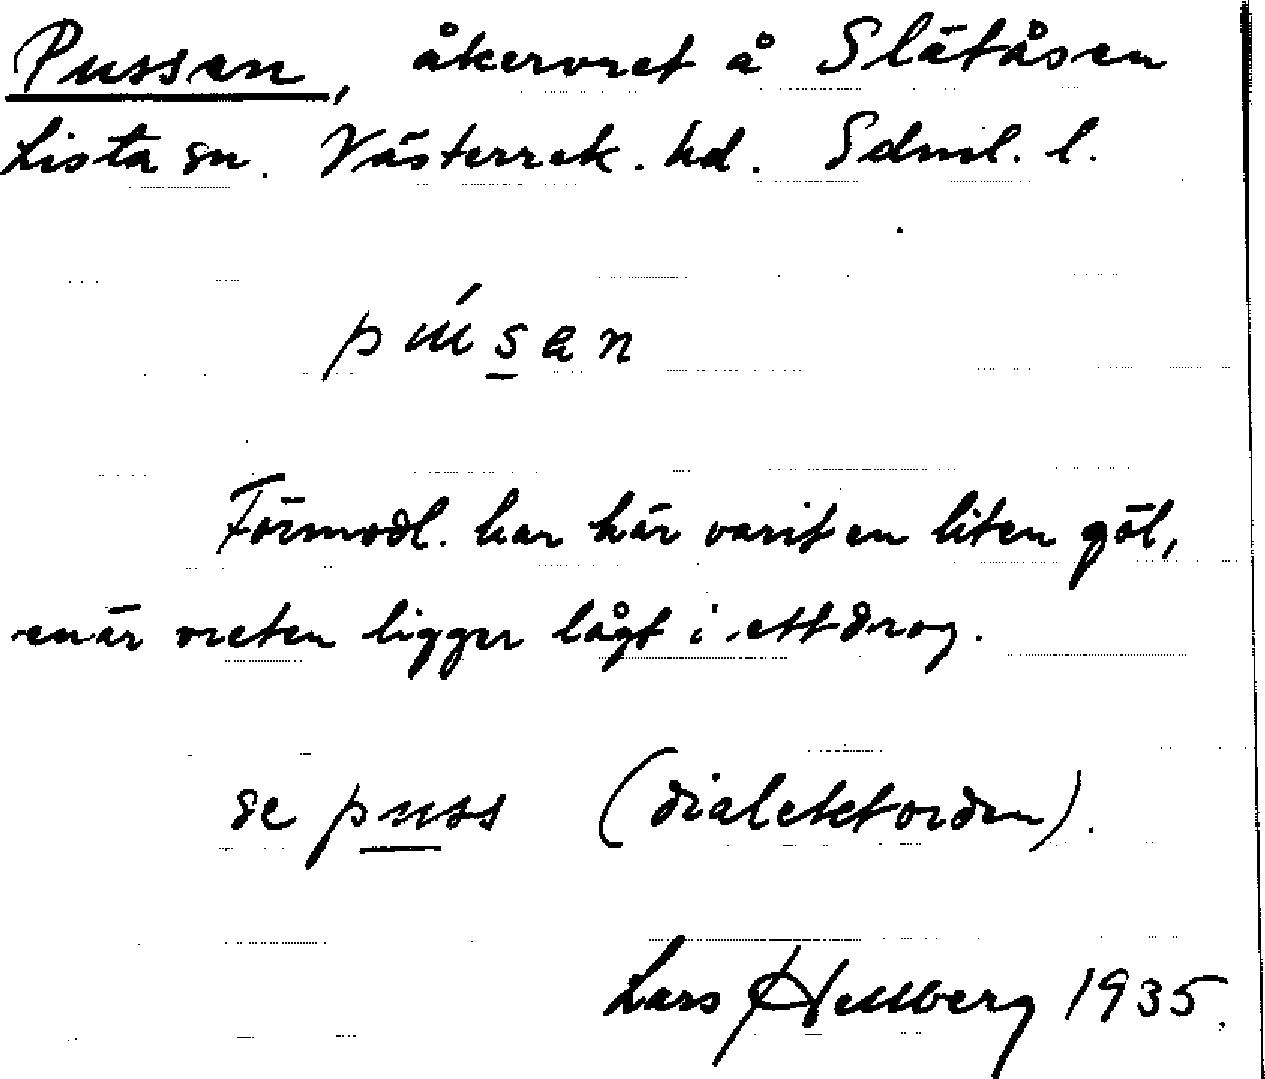 Pussen, åkervret å Slätåsen
Lista sn. Västerrek. hd. Sdml. l.
púsen
Förmodl. har här varit en liten göl,
enär vreten ligger lågt i ett drog.
se puss (dialektorden).
Lars Hellberg 1935.